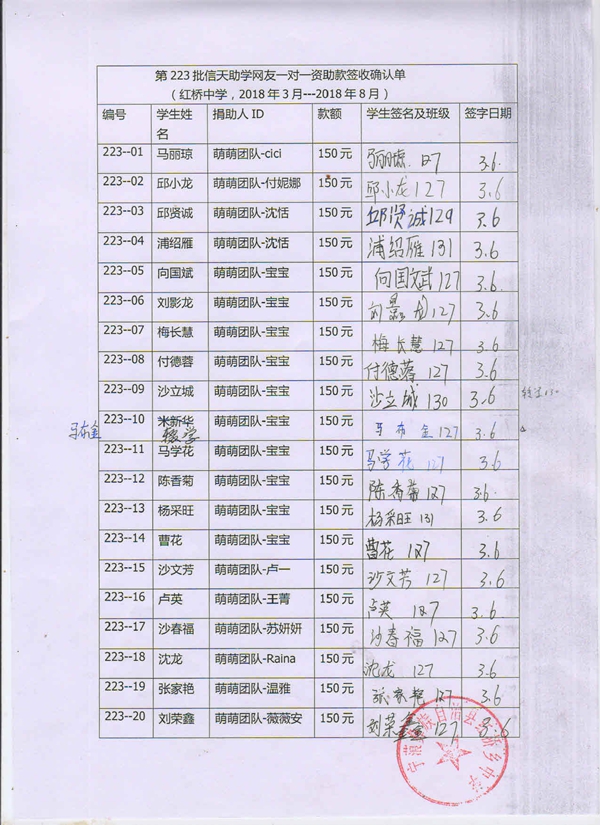 第 223 批信天助学网友一对一资助款签收确认单
（红桥中学，2018 年 3 月---2018 年 8 月）
编号 学生姓名 捐助人 ID 款额 学生签名及班级 签字日期
223--01 马丽琼 萌萌团队-cici 150 元 马丽琼 127 3.6
223--02 邱小龙 萌萌团队-付妮娜 150 元 邱小龙 127 3.6
223--03 邱贤诚 萌萌团队-沈恬 150 元 邱贤诚 129 3.6
223--04 浦绍雁 萌萌团队-沈恬 150 元 浦绍雁 131 3.6
223--05 向国斌 萌萌团队-宝宝 150 元 向国斌 127 3.6
223--06 刘影龙 萌萌团队-宝宝 150 元 刘影龙 127 3.6
223--07 梅长慧 萌萌团队-宝宝 150 元 梅长慧 127 3.6
223--08 付德蓉 萌萌团队-宝宝 150 元 付德蓉 127 3.6
223--09 沙立城 萌萌团队-宝宝 150 元 沙立城 130 3.6
马布金 223--10 米新华 辍学 萌萌团队-宝宝 150 元 马布金 127 3.6
223--11 马学花 萌萌团队-宝宝 150 元 马学花 127 3.6
223--12 陈香菊 萌萌团队-宝宝 150 元 陈香菊 127 3.6
223--13 杨采旺 萌萌团队-宝宝 150 元 杨采旺 131 3.6
223--14 曹花 萌萌团队-宝宝 150 元 曹花 127 3.6
223--15 沙文芳 萌萌团队-卢一 150 元 沙文芳 127 3.6
223--16 卢英 萌萌团队-王菁 150 元 卢英 127 3.6
223--17 沙春福 萌萌团队-苏妍妍 150 元 沙春福 127 3.6
223--18 沈龙 萌萌团队-Raina 150 元 沈龙 127 3.6
223--19 张家艳 萌萌团队-温雅 150 元 张家艳 127 3.6
223--20 刘荣鑫 萌萌团队-薇薇安 150 元 刘荣鑫 127 3.6